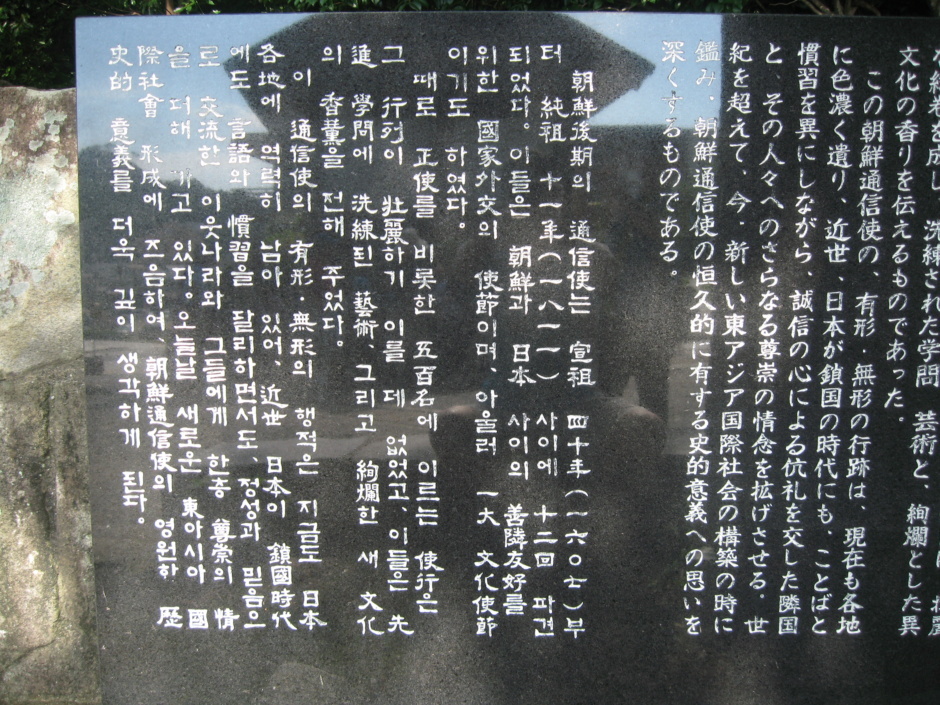 壮麗
な絵巻を成し、洗練された学問 芸術と、絢爛とした異
文化の香りを伝えるものであった。
この朝鮮通信使の、有形・無形の行跡は、現在も各地
に色濃く遺り、近世、日本が鎖国の時代にも、ことばと
慣習を異にしながら、誠信の心による伉礼を交した隣国
と、その人々へのさらなる尊崇の情念を拡げさせる。世
紀を超えて、今、新しい東アジア国際社会の構築の時に
鑑み、朝鮮通信使の恒久的に有する史的意義への思いを
深くするものである。
朝鮮後期의 通信使는 宣祖 四十年(一六〇七)부
터 純祖 十一年(一八一一) 사이에 十二回 파견
되었다。이들은 朝鮮과 日本 사이의 善隣友好를
위한 國家外交의 使節이며、아울러 一大 文化使節
이기도 하였다。
때로 正使를 비롯한 五百名에 이르는 使行은
그 行列이 壯麗하기 이를 데 없었고、이들은 先
進 學問에 洗練된 藝術、그리고 絢爛한 새 文化
의 香薰을 전해 주었다。
이 通信使의 有形·無形의 행적은 지금도 日本
各地에 역력히 남아 있어、近世 日本이 鎖國時代
에도 言語와 慣習을 달리하면서도、정성과 믿음으
로 交流한 이웃나라와 그들에게 한층 尊崇의 情
을 더해 가고 있다。오늘날 새로운 東아시아 國
際社會 形成에 즈음하여、朝鮮通信使의 영원한 歷
史的 意義를 더욱 깊이 생각하게 된다。